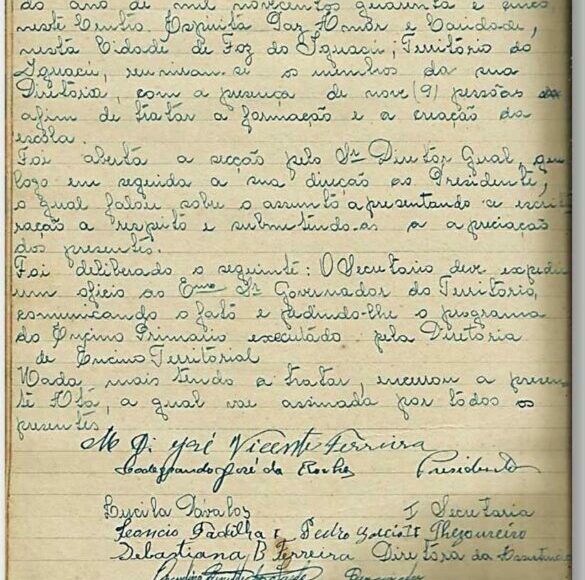 do ano de mil novecentos quarenta e cinco,
neste Centro Espirita Paz Amôr e Caridade,
nesta Cidade de Foz do Iguaçú, Território do
Iguaçú, reuniram-se os membros da sua
Diretória, com a presença de nove (9) pessôas
afim de tratar a formação e a criação da
escola.
Foi aberta a secção pelo Snr Diretôr Geral, que
logo em seguida a sua direção ao Presidente,
o qual falou sobre o assunto apresentando a escritu
ração a respeito e submetendo-as a apreciação
dos presentes.
Foi deliberado o seguinte: O Secretario deve expedir
um oficio ao Exmo Snr Governador do Território,
comunicando o fato e pedindo-lhe o programa
do Encino Primario executádo pela Diretoria
de Encino Territorial
Nada mais tendo a tratar, encerrou a presen
te Áta, a qual vae assinada por tôdos os
presentes
José Vicente Ferreira
José da Rocha Presidente
Lucila Dávalos I Secretaria
Leoncio Padilha Pedro Thezoureiro
Sebastiana B Ferreira Diretôra da Assistência